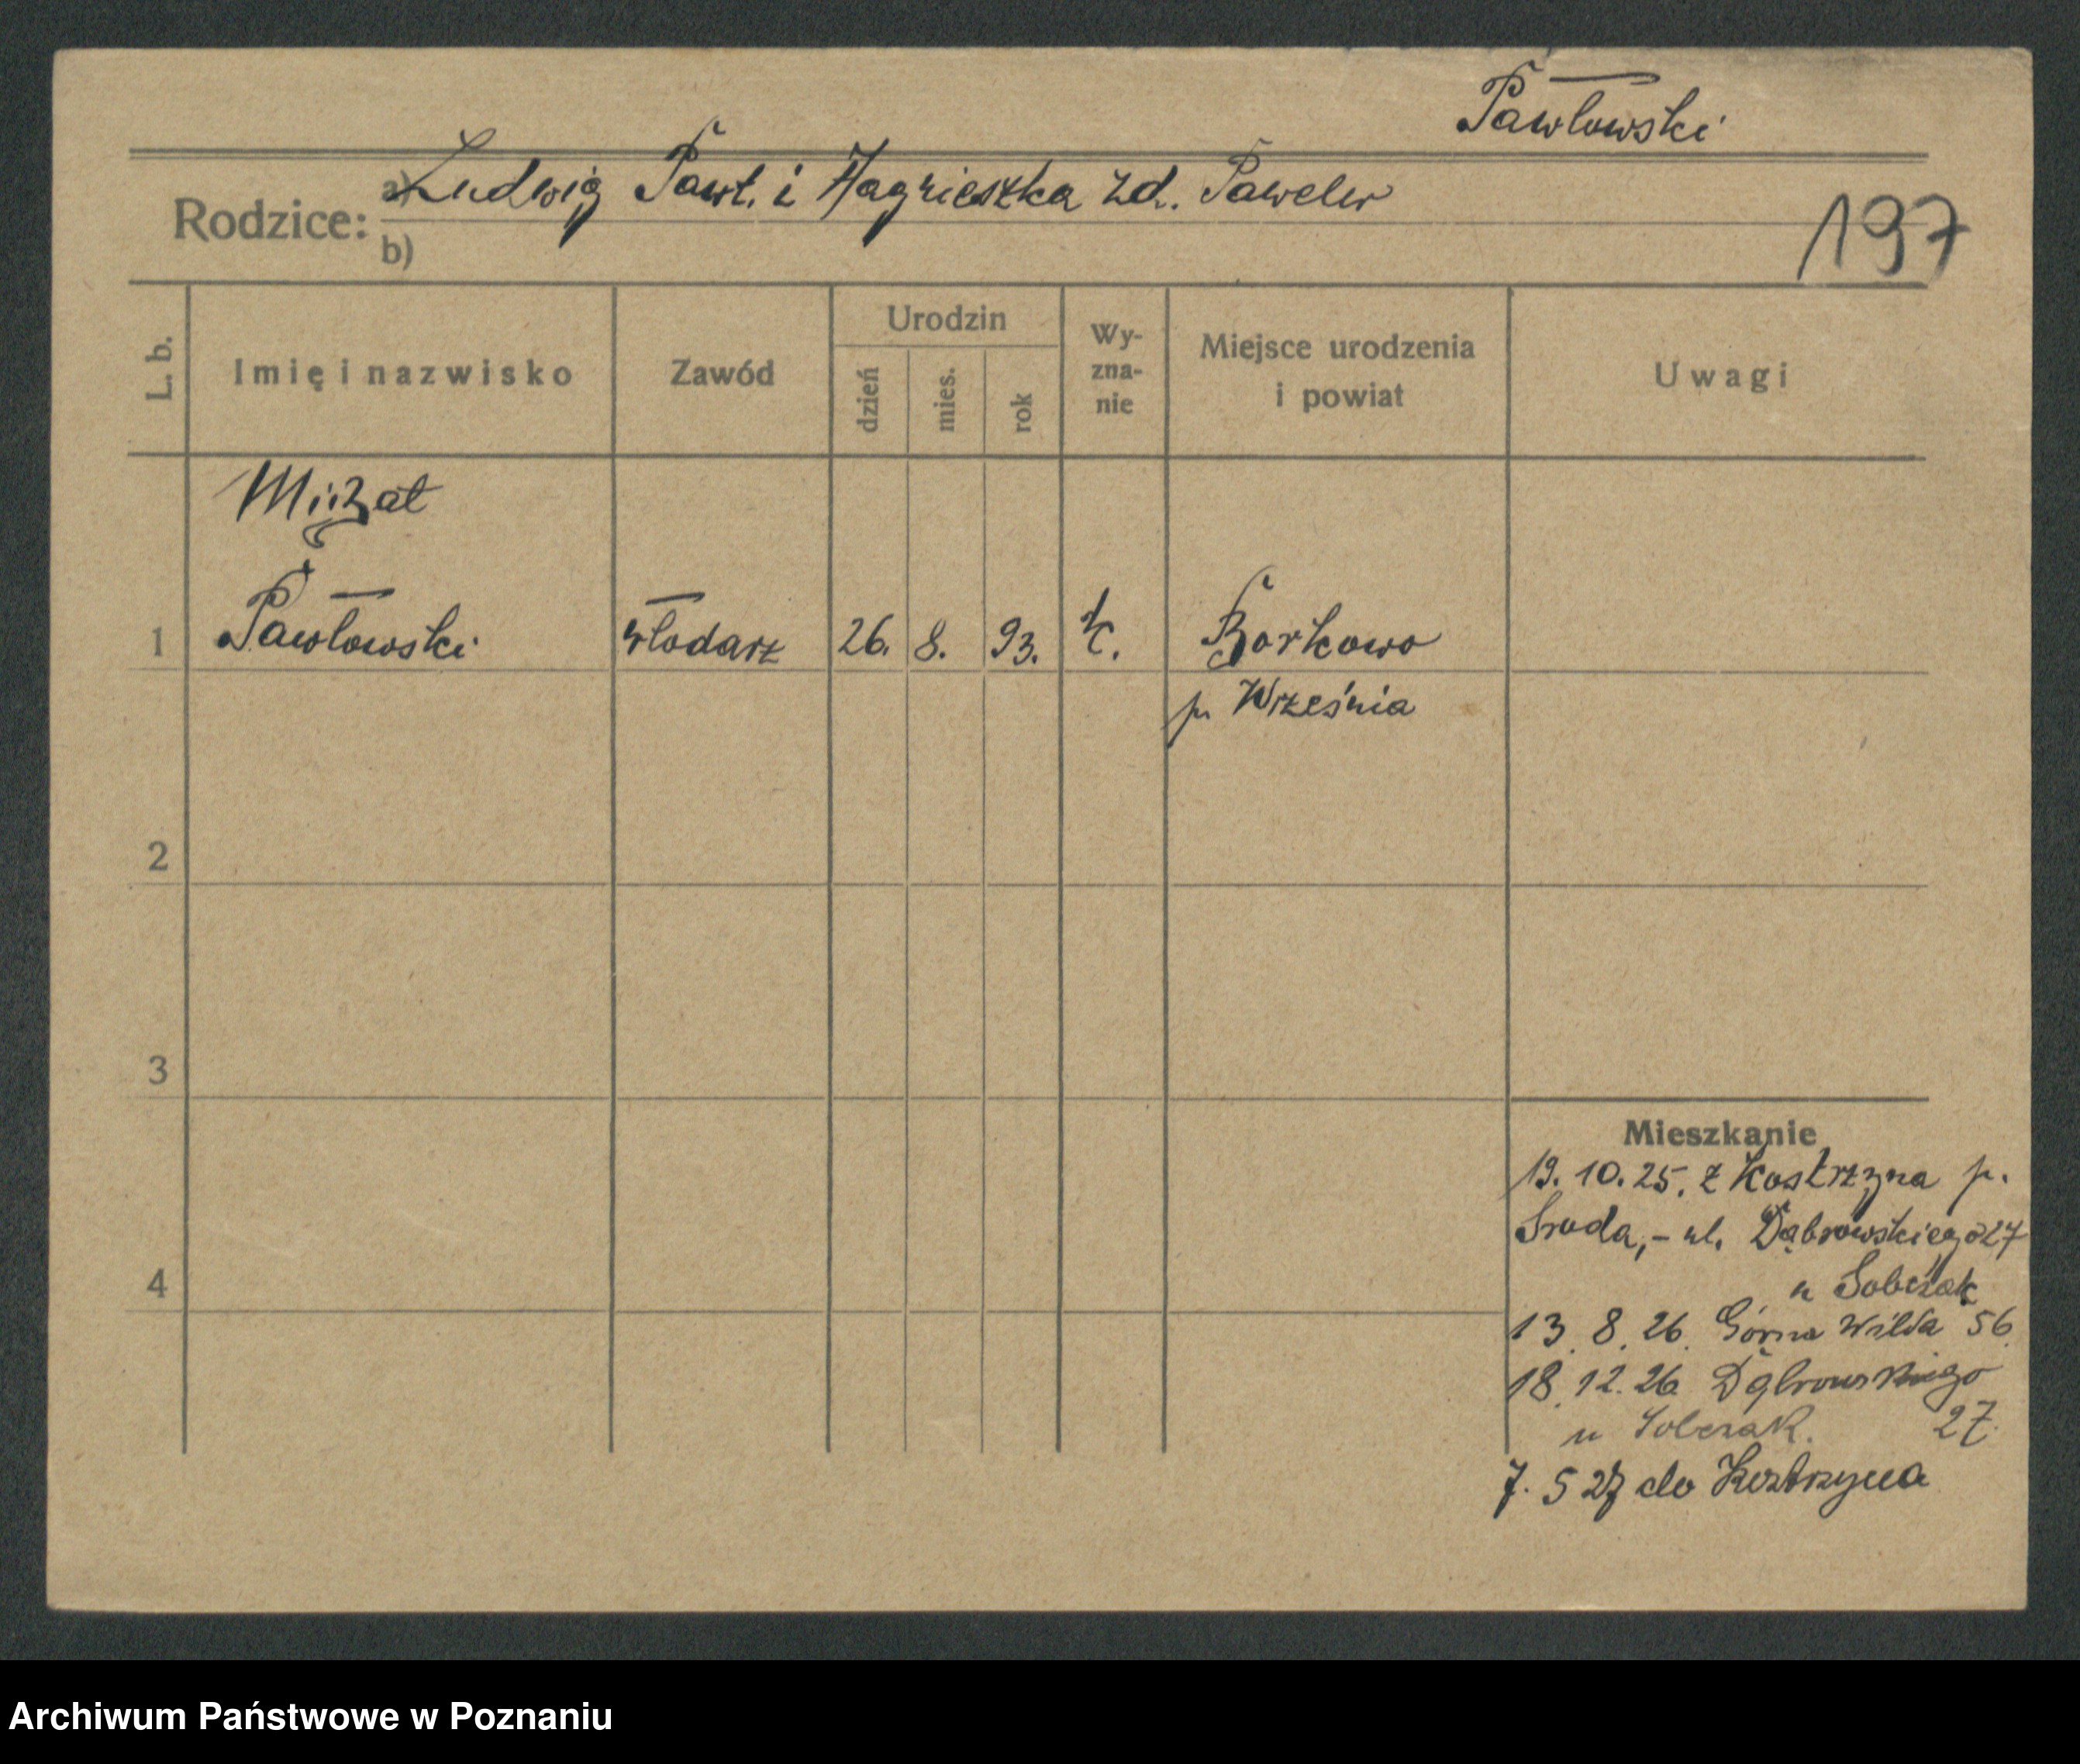 Pawłowski
Rodzice: a) Ludwig Pawł. i Hagnieszka zd. Pawelw
b)
197
L. b. Imię i nazwisko Zawód Urodzin dzień mies. rok Wy-zna-nie Miejsce urodzenia i powiat Uwagi
1 Pawłowski włodarz 26. 8. 93. k. Borkowo
p. Września
2
3
Mieszkanie
19.10.25. z Kostrzyna p.
Sroda,- ul. Dąbrowskiego 27
4
u Sobczak
13.8.26. Górna Wilda 56.
18.12.26 Dąbrowskiego
u Sobczak. 27.
7.5 27 do Kostrzyna
Archiwum Państwowe w Poznaniu